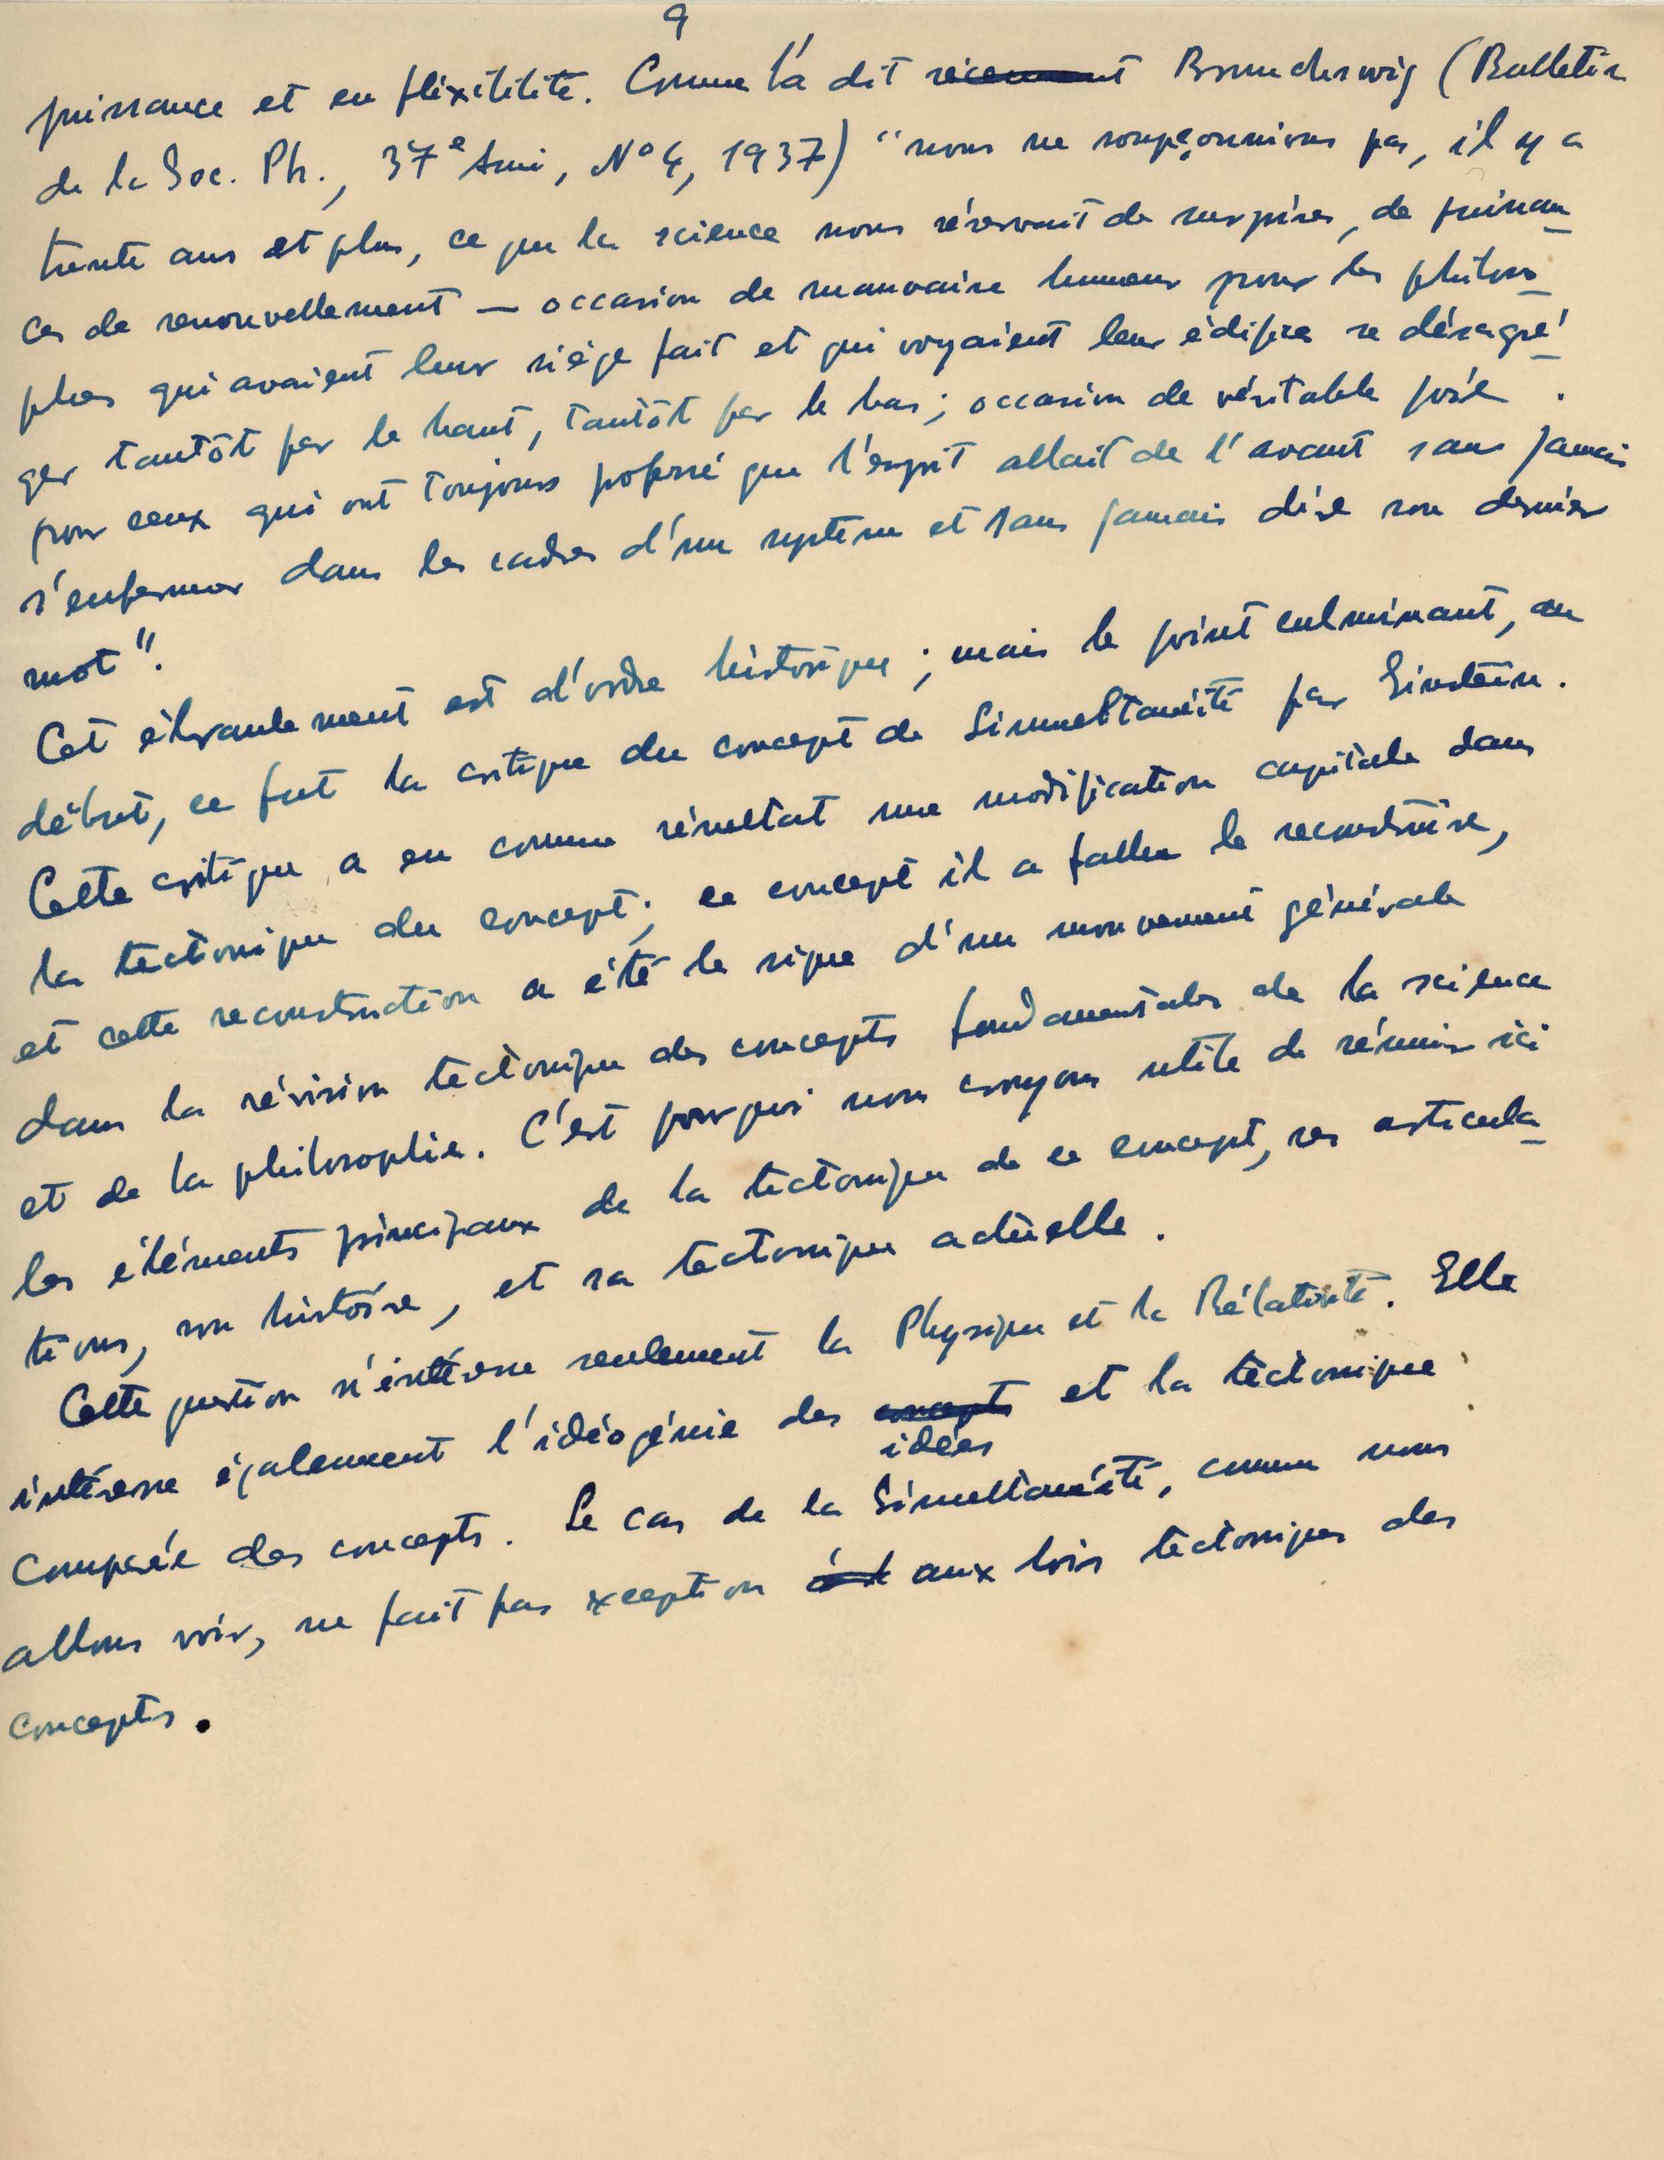 9
puissance et en fléxibilité. Comme l'a dit récemment Brunchswig (Bulletin
de la Soc. Ph., 37e Anné, No 4, 1937) "nous ne soupçonnions pas, il y a
trente ans et plus, ce que la science nous réservait de surprises, de puissan-
ces de renouvellement — occasion de mauvaise humeur pour les philoso-
phes qui avaient leur siège fait et qui voyaient leur édifice se désagré-
ger tantôt par le haut, tantôt par le bas; occasion de véritable joie
pour ceux qui ont toujours professé que l'esprit allait de l'avant sans jamais
s'enfermer dans les cadres d'un système et sans jamais dire son dernier
mot".
Cet ébranlement est d'ordre historique; mais le point culminant, au
début, ce fut la critique du concept de Simultanéité par Einstein.
Cette critique a eu comme résultat une modification capitale dans
la tectonique du concept; ce concept il a fallu le reconstruire,
et cette reconstruction a été le signe d'un mouvement générale
dans la révision tectonique des concepts fondamentales de la science
et de la philosophie. C'est pourquoi nous croyons utile de réunir ici
les éléments principaux de la tectonique de ce concept, ses articula-
tions, son histoire, et sa tectonique actuelle.
Cette question n'intéresse seulement la Physique et la Rélativité. Elle
intéresse également l'idéogénie des concepts et la tectonique
idées
comparée des concepts. Le cas de la Simultanéité, comme nous
allons voir, ne fait pas exception aux lois tectoniques des
concepts.